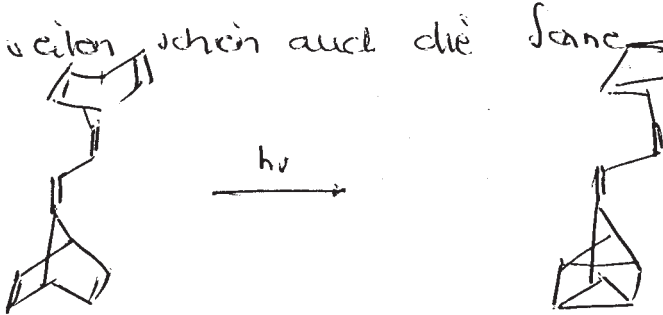 weilen schon auch die Sonne
hν